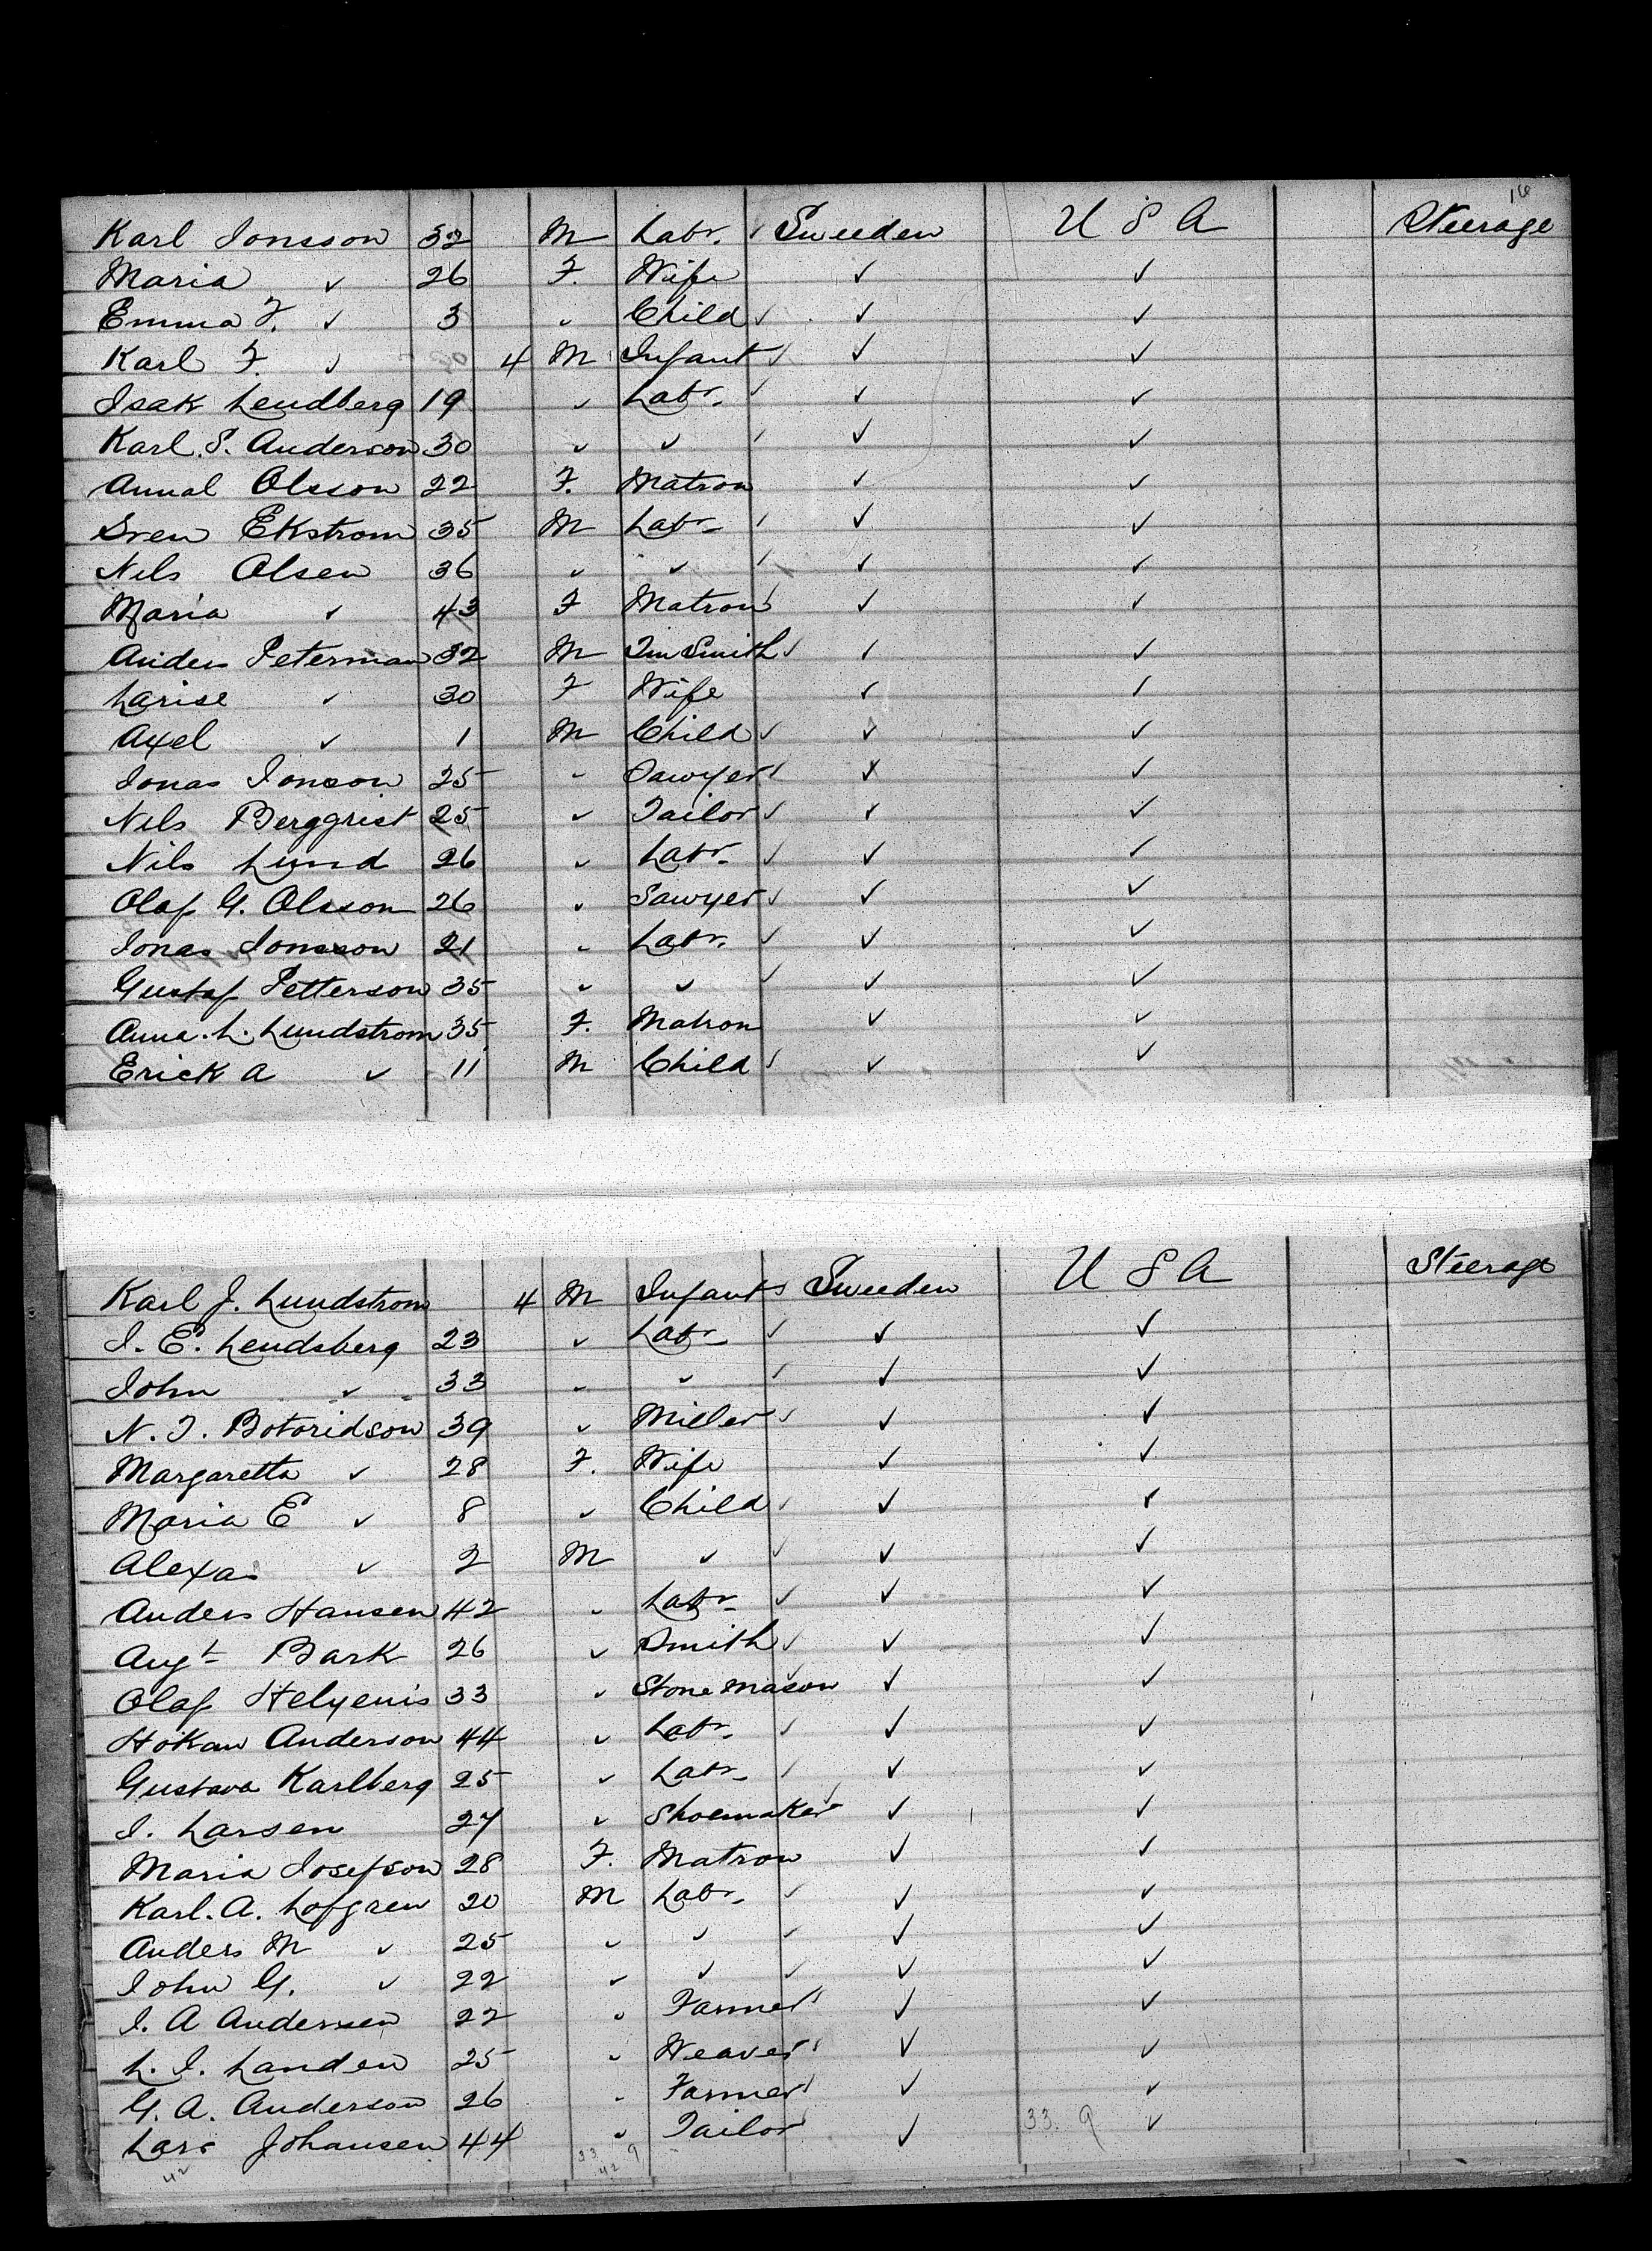 16
Karl Jonsson 32 M Labr. ✓ Sweeden U S A Steerage
Maria ✓ 26 F. Wife ✓ ✓
Emma F. ✓ 3 ✓ Child ✓ ✓ ✓
Karl F. ✓ 4 M Infant ✓ ✓ ✓
Isak Lendberg 19 ✓ Labr. ✓ ✓ ✓
Karl. S. Anderson 30 ✓ ✓ ✓ ✓ ✓
Annal Olsson 22 F. Matron ✓ ✓
Sven Ekstrom 35 M Labr ✓ ✓ ✓
Nels Olsen 36 ✓ ✓ ✓ ✓ ✓
Maria ✓ 43 F Matron ✓ ✓ ✓
Anders Peterman 32 M Tin Smith ✓ ✓ ✓
Larise ✓ 30 F Wife ✓ ✓
Axel ✓ 1 M Child ✓ ✓ ✓
Jonas Jonson 25 ✓ Sawyer ✓ ✓ ✓
Nels Bergqrist 25 ✓ Tailor ✓ ✓ ✓
Nils Lund 26 ✓ Labr. ✓ ✓ ✓
Olaf G. Olsson 26 ✓ Sawyer ✓ ✓ ✓
Jonas Jonsson 21 ✓ Labr. ✓ ✓ ✓
Gustaf Petterson 35 ✓ ✓ ✓ ✓ ✓
Anna. L. Lundstrom 35 F. Matron ✓ ✓
Erick A ✓ 11 M Child ✓ ✓ ✓
Karl J. Lundstrom 4 M Infant ✓ Sweeden U S A Steerage
J. E. Lendsberg 23 ✓ Labr ✓ ✓ ✓
John ✓ 33 ✓ ✓ ✓ ✓ ✓
N. J. Botoridson 39 ✓ Miller ✓ ✓ ✓
Margaretta ✓ 28 F. Wife ✓ ✓
Maria E ✓ 8 ✓ Child ✓ ✓ ✓
Alexa ✓ 2 M ✓ ✓ ✓ ✓
Anders Hansen 42 ✓ Labr ✓ ✓ ✓
Augt Bark 26 ✓ Smith ✓ ✓ ✓
Olaf Helyenis 33 ✓ Stone Mason ✓ ✓ ✓
Hokan Anderson 44 ✓ Labr. ✓ ✓ ✓
Gustava Karlberg 25 ✓ Labr. ✓ ✓ ✓
J. Larsen 27 ✓ Shoemaker ✓ ✓ ✓
Maria Josefson 28 F. Matron ✓ ✓
Karl. A. Lofgren 20 M Labr. ✓ ✓ ✓
Anders M ✓ 25 ✓ ✓ ✓ ✓ ✓
John G. ✓ 22 ✓ ✓ ✓ ✓ ✓
J. A Andersen 22 ✓ Farmer ✓ ✓ ✓
L. J. Landen 25 ✓ Weaver ✓ ✓ ✓
G. A. Anderson 26 ✓ Farmer ✓ ✓ ✓
Lars Johansen 44 ✓ Tailor ✓ ✓ 33. 9 ✓
42 33 9
42